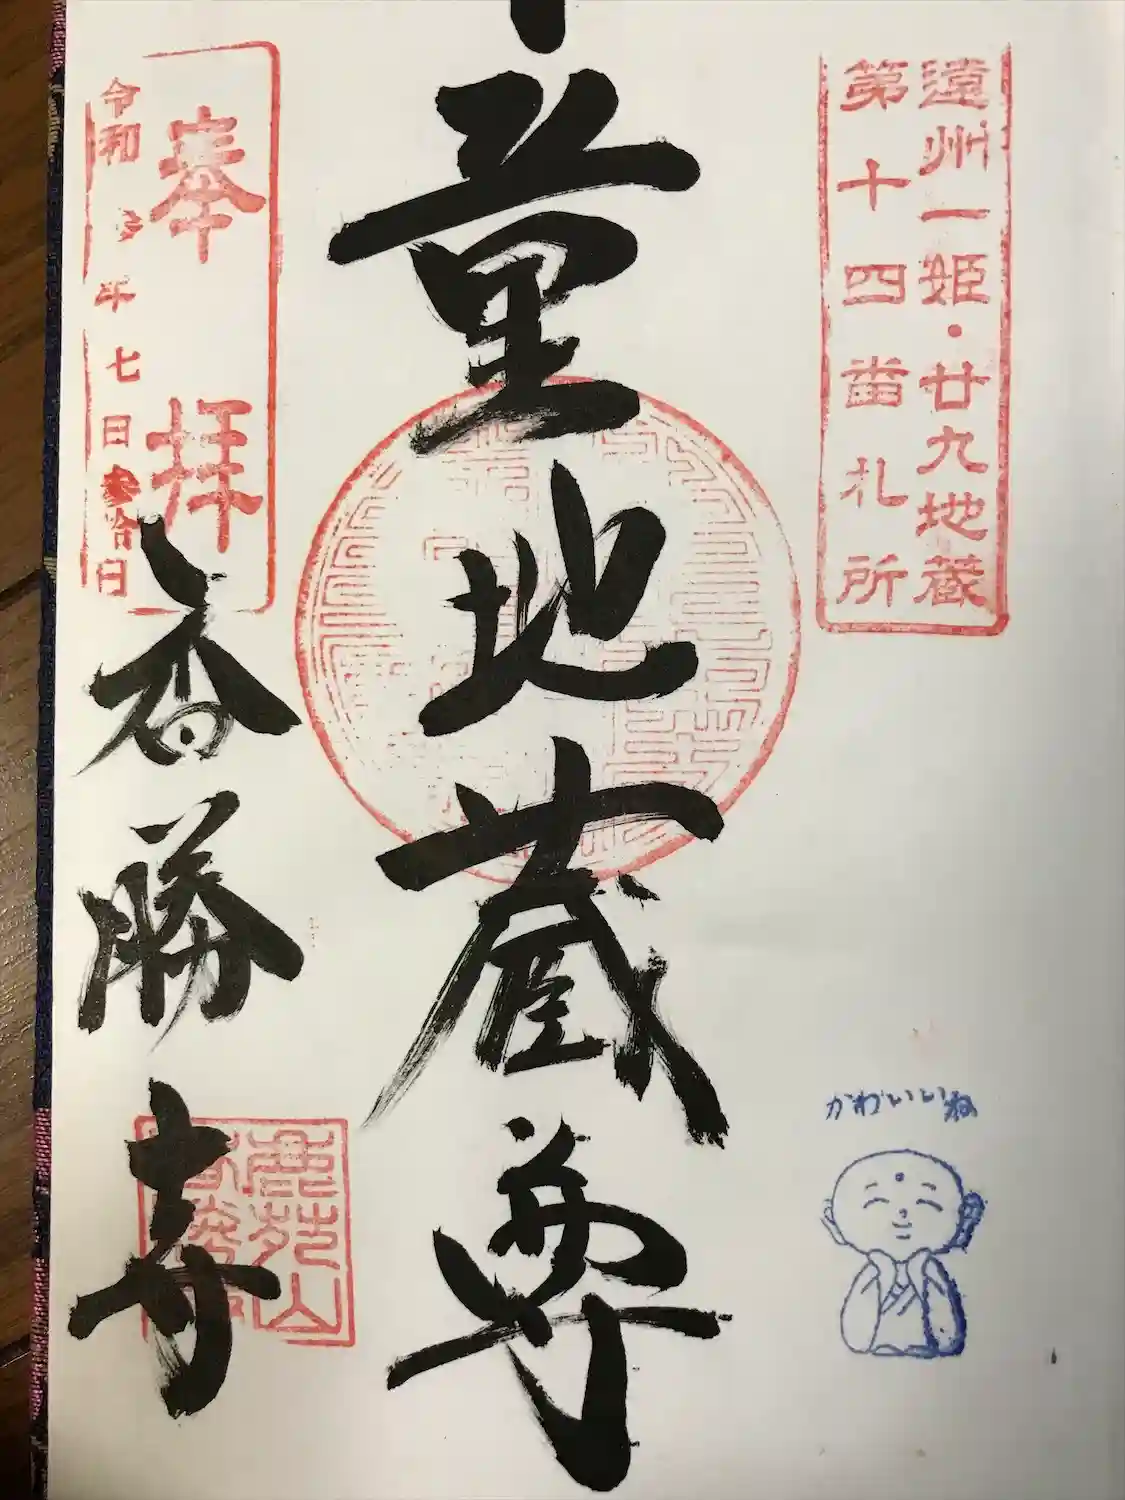 遠州一姫・廿九地蔵
第十四番札所
童地蔵尊
奉拝
令和 年七月参拾日
香勝寺
鹿苑山
かわいいね